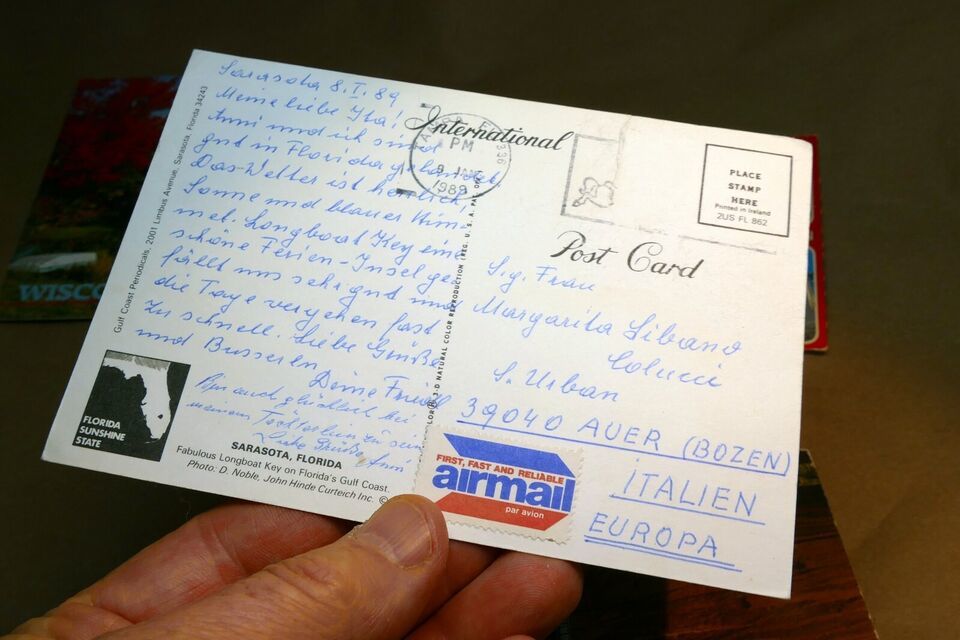 Sarasota 8.I.89
Meine liebe Ita!
Anni und ich sind
gut in Florida gelandet.
Das Wetter ist herrlich,
Sonne und blauer Him-
mel. Longboat Key eine
schöne Ferien-Insel ge-
fällt uns sehr gut und
die Tage vergehen fast
zu schnell. Liebe Grüße
und Busserln
Deine
Bin auch glücklich bei
meinem Töchterlein zu sein
Liebe Grüße Anni
Gulf Coast Periodicals, 2001 Limbus Avenue, Sarasota, Florida 34243
FLORIDA
SUNSHINE
STATE
SARASOTA, FLORIDA
Fabulous Longboat Key on Florida's Gulf Coast.
Photo: D. Noble, John Hinde Curteich Inc. ©
3-D NATURAL COLOR REPRODUCTION (REG. U.S.A. PAT. OFF.
International
Post Card
PM
9 JAN
1989
PLACE
STAMP
HERE
Printed in Ireland
2US FL 862
S.g. Frau
Margarita Libano
Colucci
S. Urban
39040 AUER (BOZEN)
ITALIEN
EUROPA
FIRST, FAST AND RELIABLE
airmail
par avion
WISCO